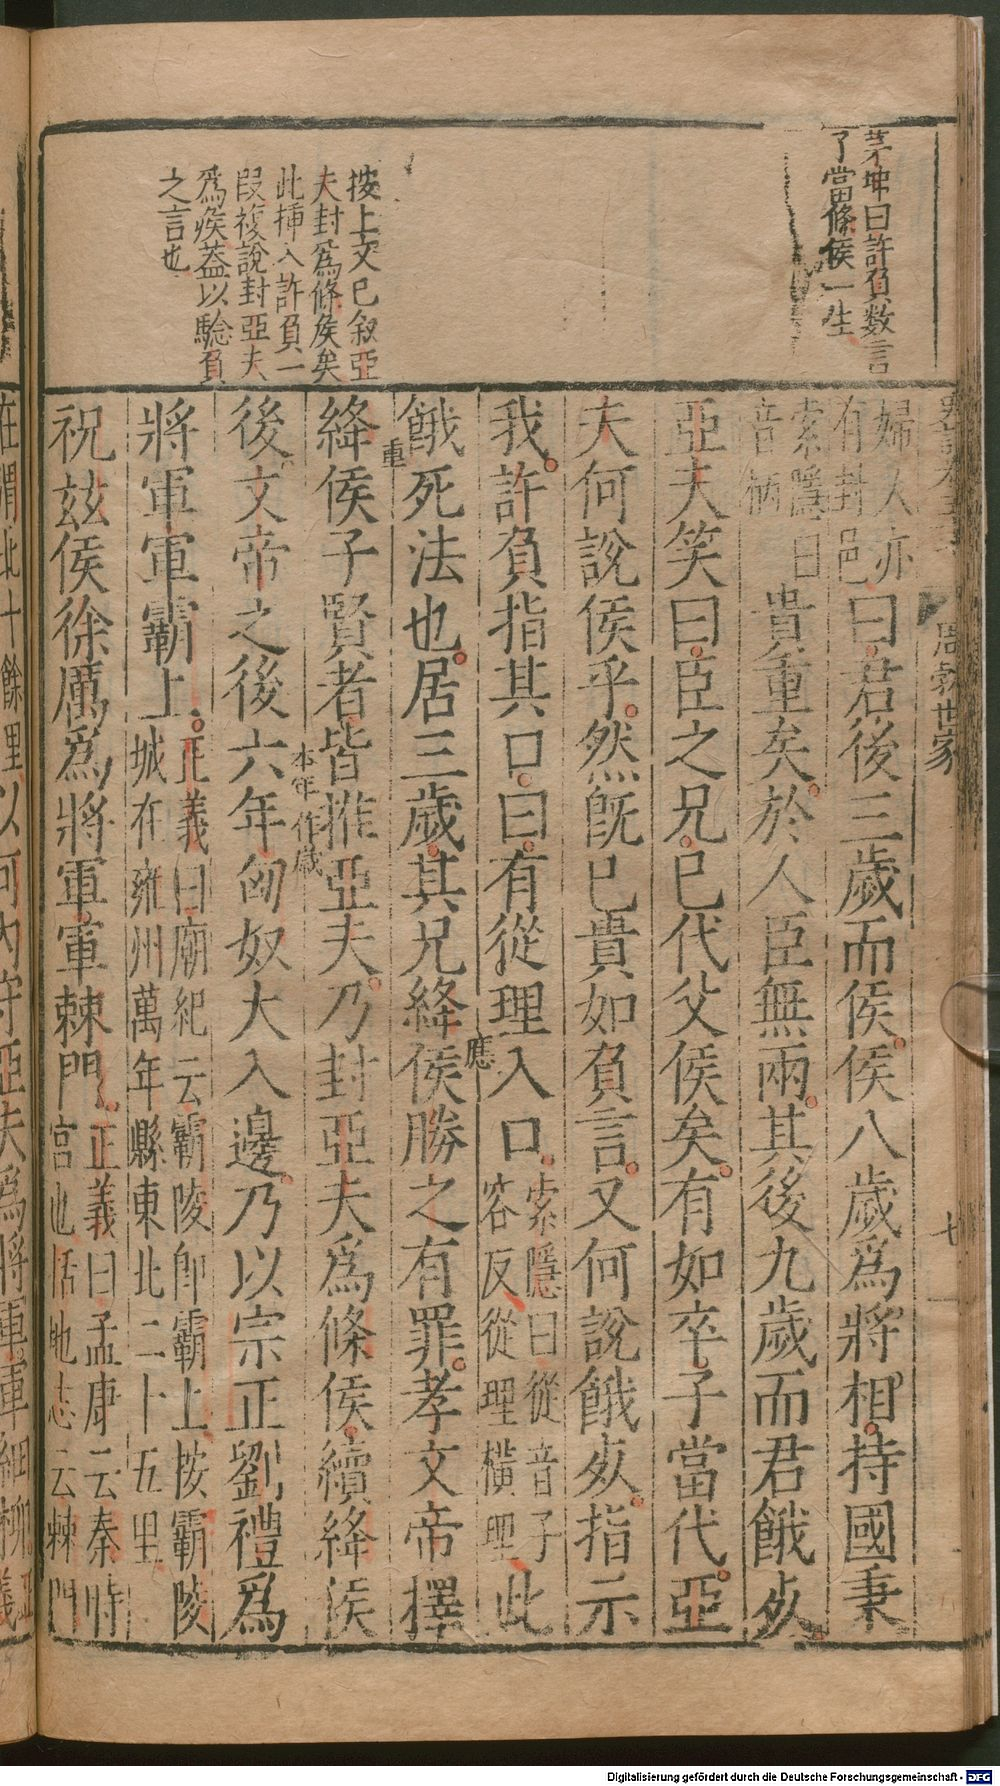 茅坤曰許負数言
了當條侯一生
按上文已叙亞
夫封爲條侯矣
此挿入許負一
段複說封亞夫
爲侯蓋以驗負
之言也
周勃世家
七
婦人亦
有封邑
曰君後三歲而侯侯八歲爲將相持國秉
索隱曰
音柄
貴重矣於人臣無兩其後九歲而君餓死
亞夫笑曰臣之兄已代父侯矣有如卒子當代亞
夫何說侯乎然旣已貴如負言又何說餓死指示
我許負指其口曰有從理入口
索隱曰從音子
容反從理橫理
此
應
餓死法也居三歲其兄絳侯勝之有罪孝文帝擇
重
絳侯子賢者皆推亞夫乃封亞夫爲條侯續絳侯
本年作歲
後文帝之後六年匈奴大入邊乃以宗正劉禮爲
將軍軍霸上
正義曰廟紀云霸陵卽霸上按霸陵
城在雍州萬年縣東北二十五里
祝玆侯徐厲爲將軍軍棘門
正義曰孟康云秦時
宮也括地志云棘門
在渭北十餘里以河內守亞夫爲將軍軍細柳
正
義
Digitalisierung gefördert durch die Deutsche Forschungsgemeinschaft - DFG